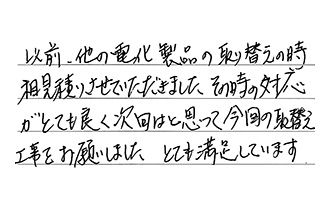 以前、他の電化製品の取り替えの時
相見積りさせていただきました。その時の対応
がとても良く次回はと思って今回の取替え
工事をお願いしました とても満足しています